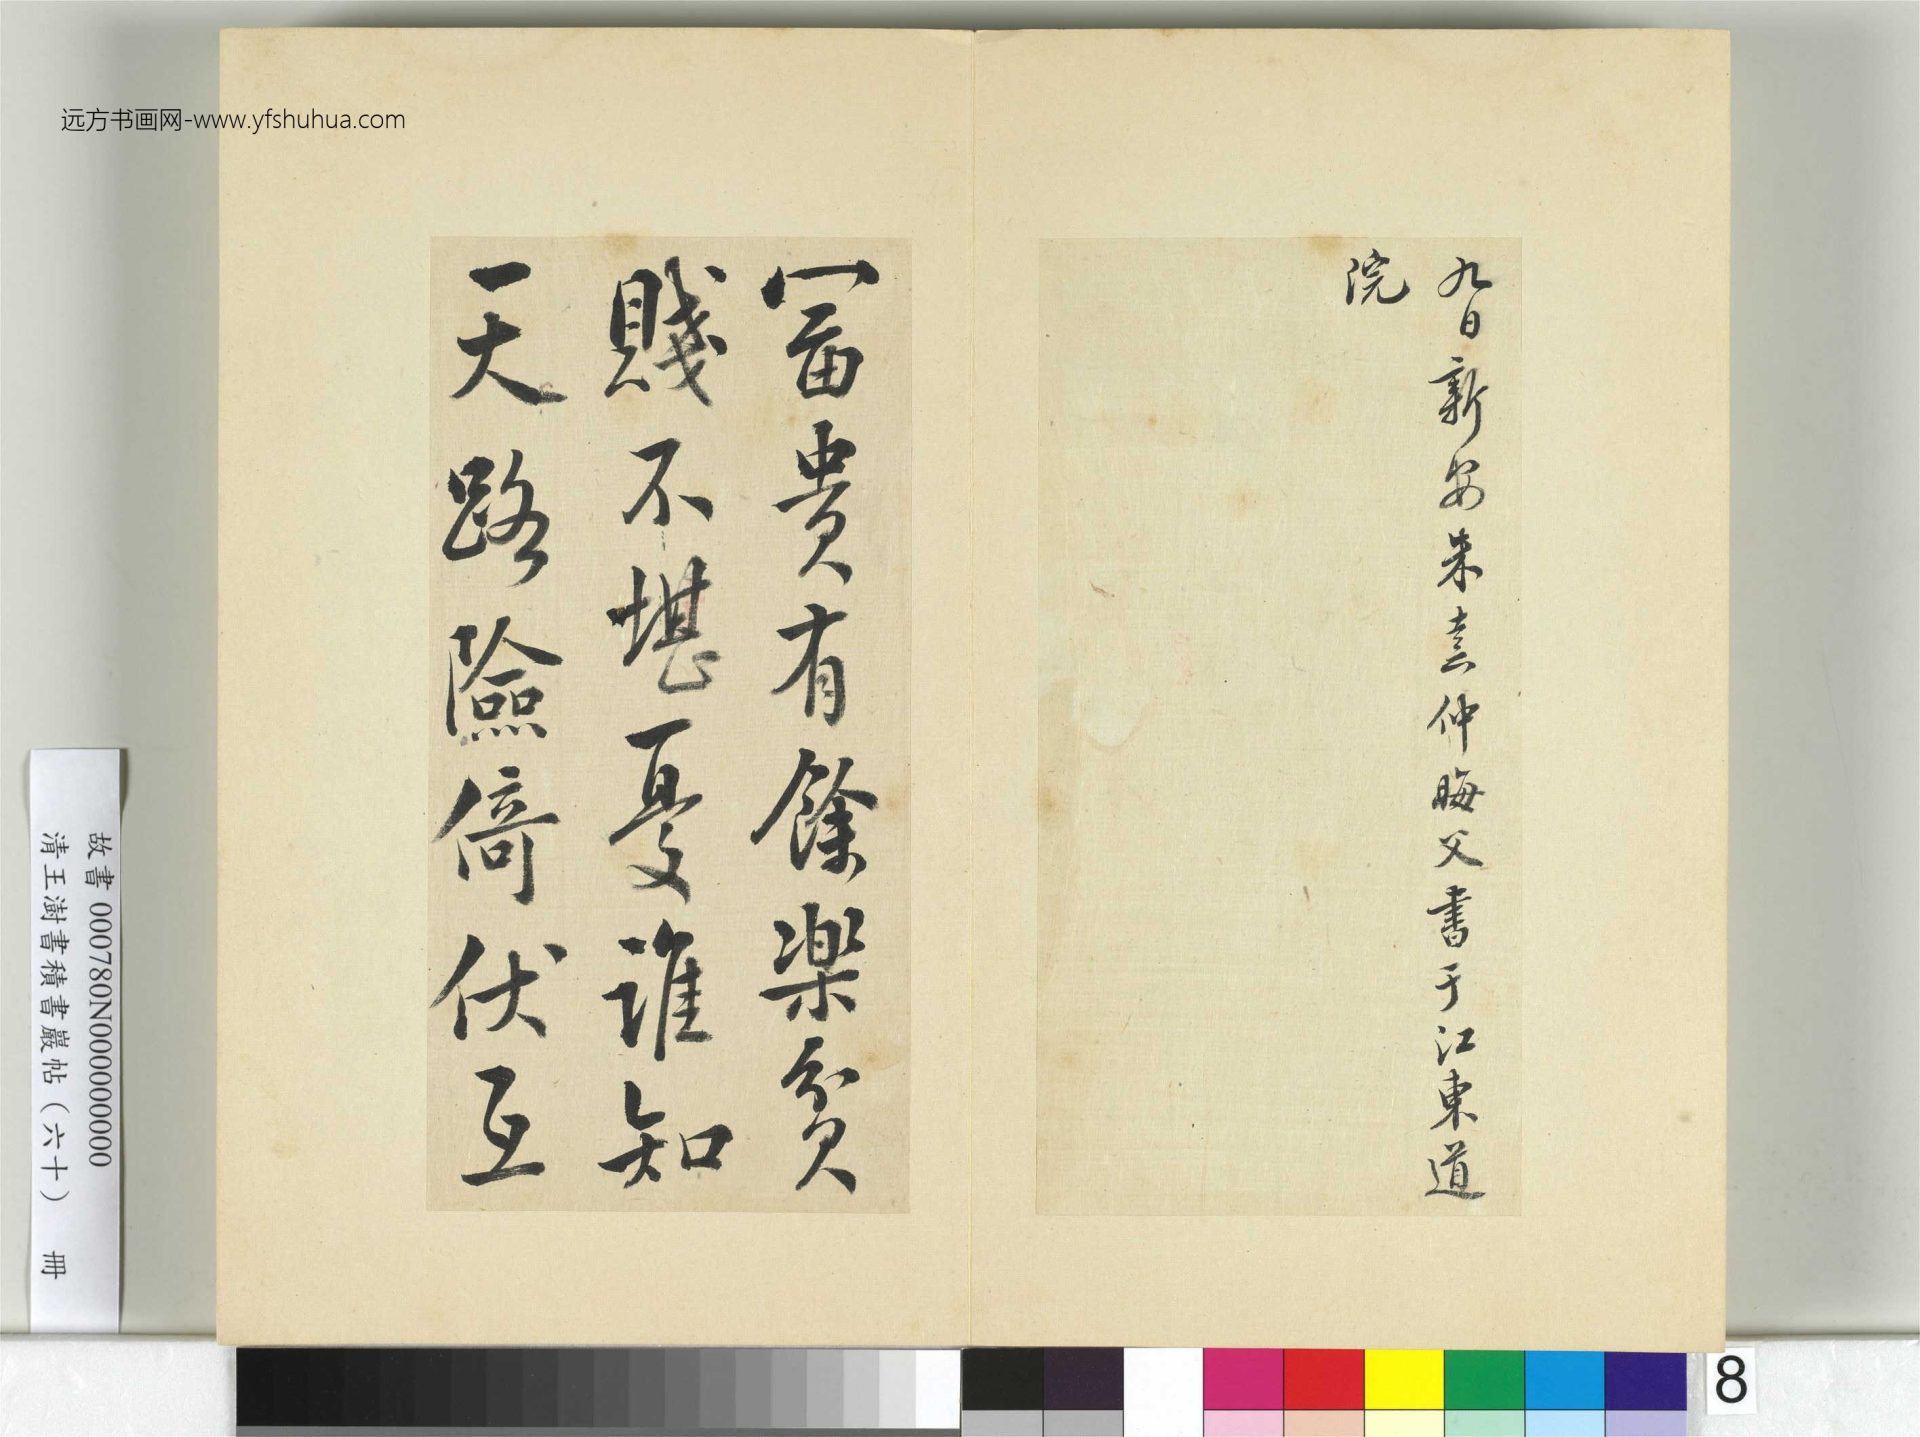 远方书画网-www.yfshuhua.com
九日新安朱熹仲晦父书于江東道
院
冨貴有餘樂貧
賤不堪憂誰知
天路險倚伏互
故書 000780N000000000
清王澍書積書巖帖(六十) 冊
8